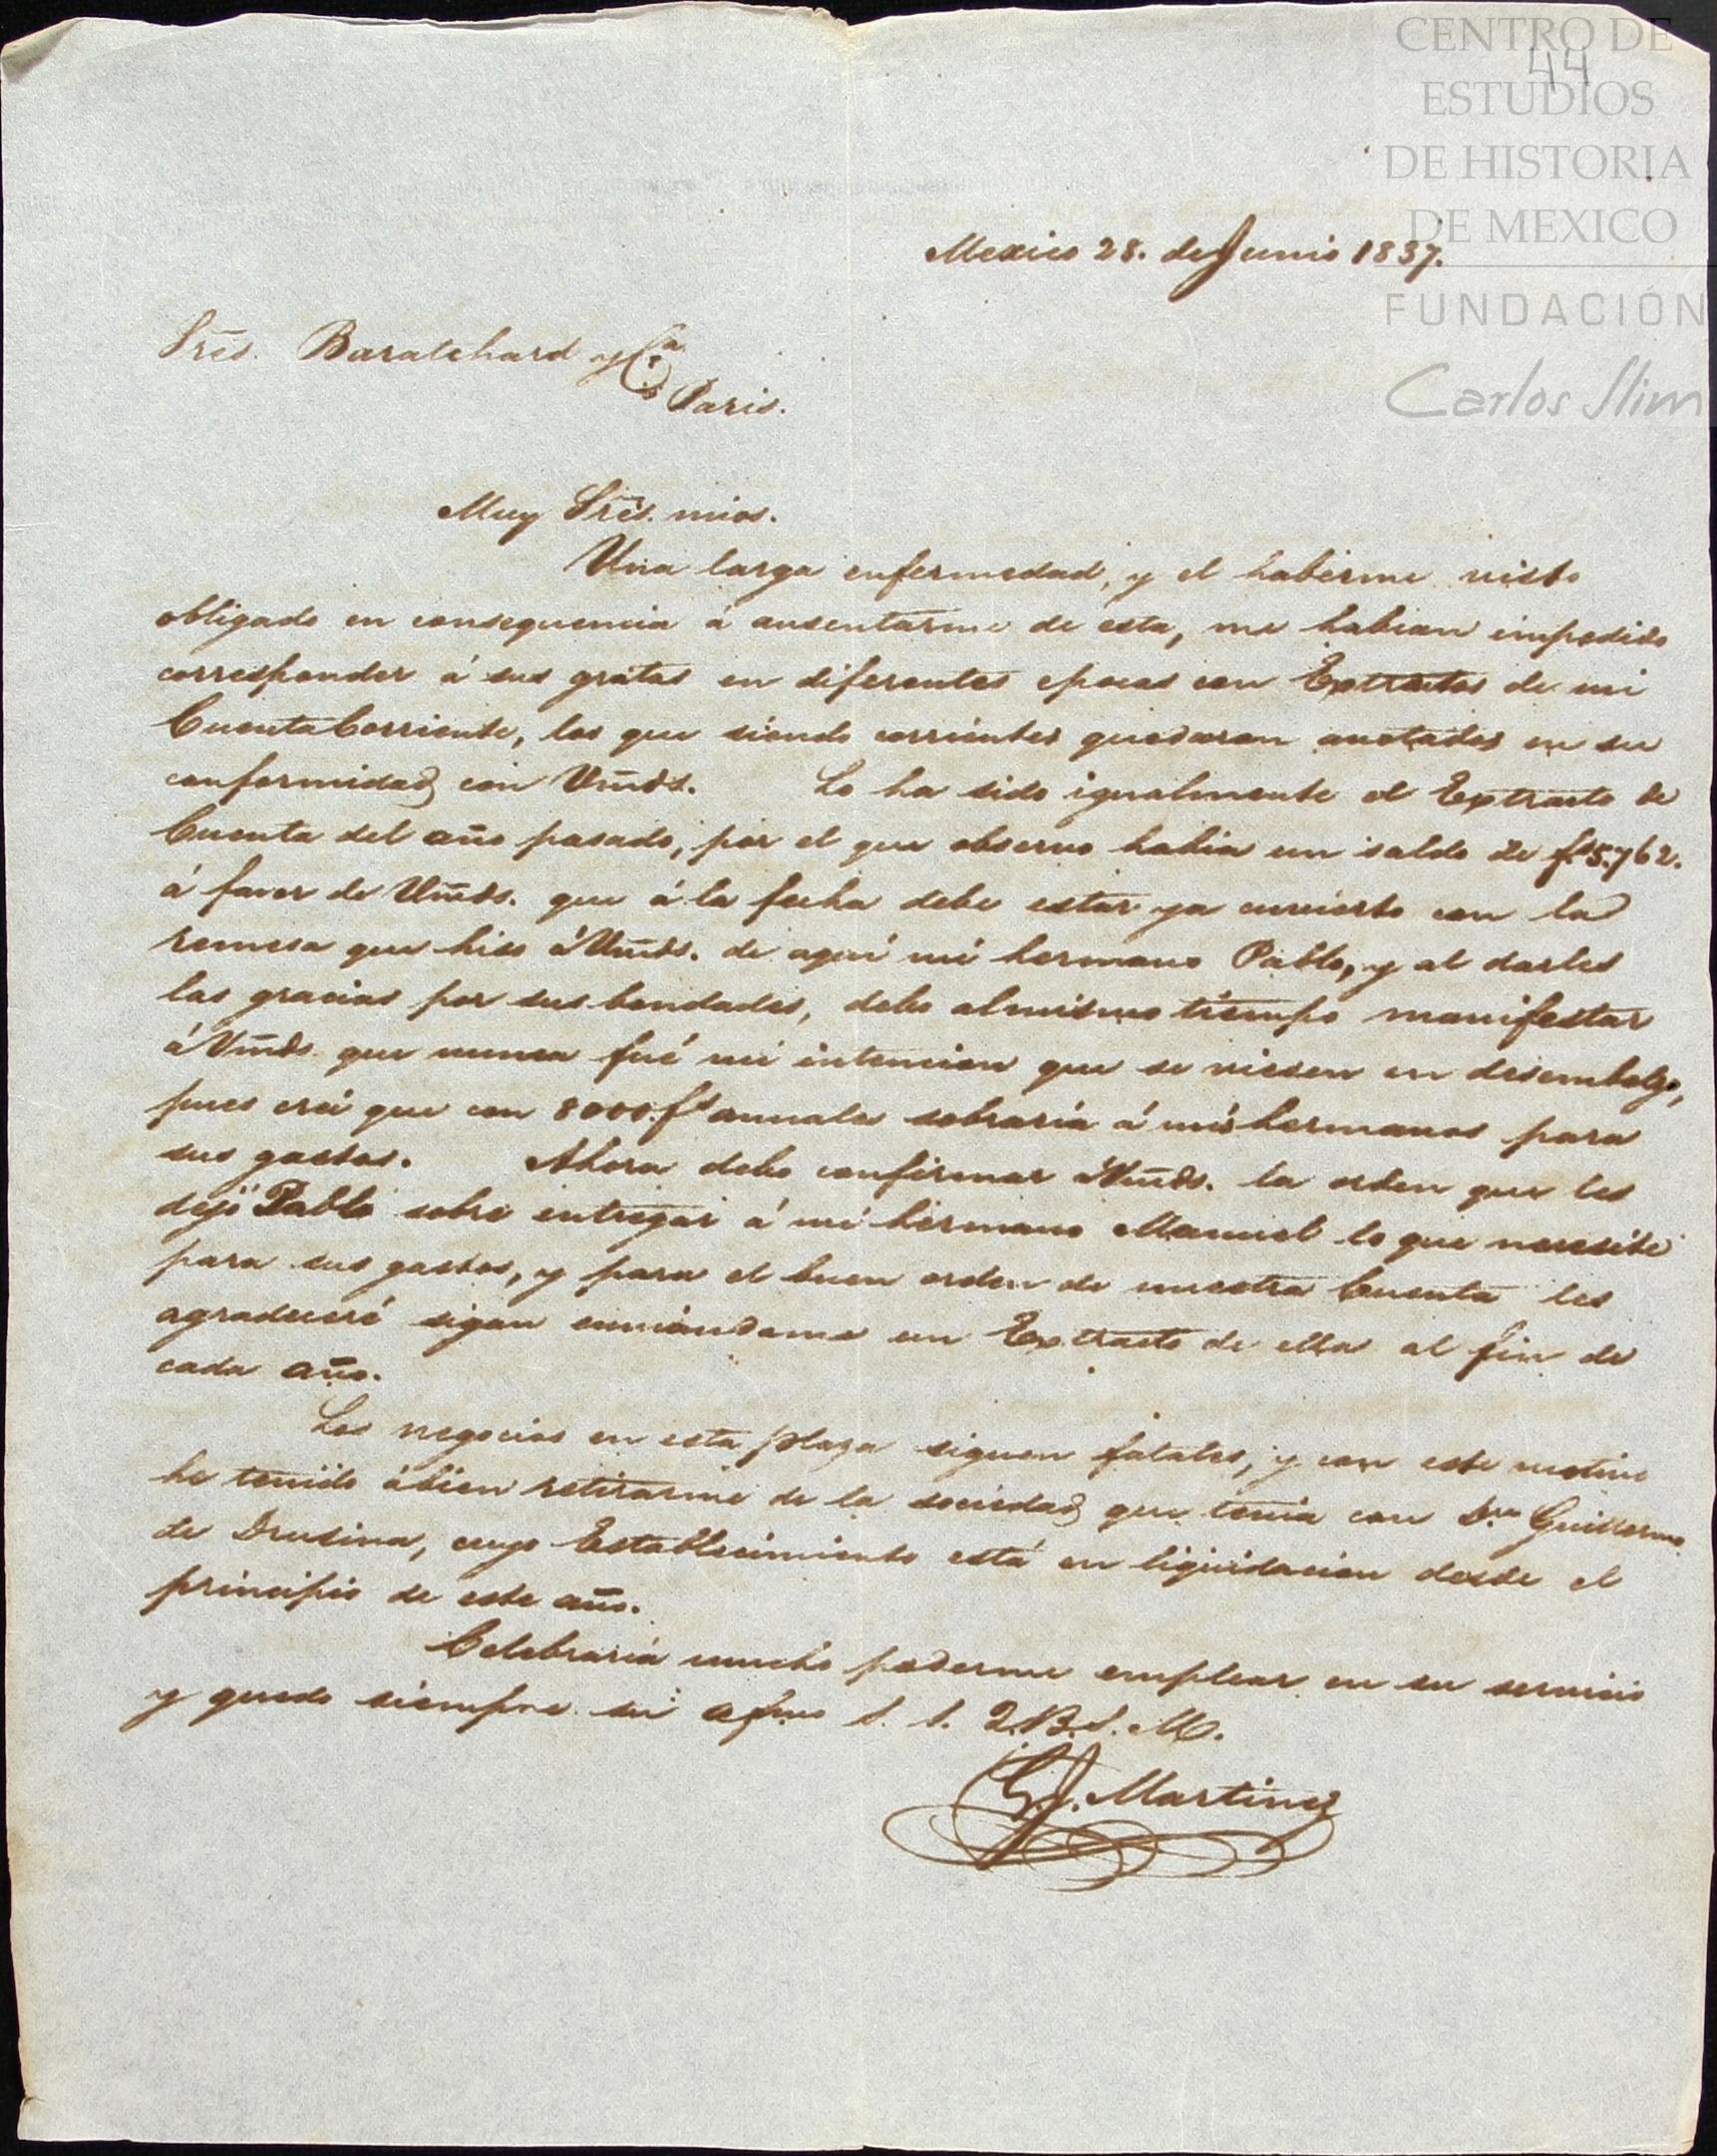 CENTRO DE
44
ESTUDIOS
DE HISTORIA
DE MEXICO
FUNDACIÓN
Carlos Slim
Mexico 28. de Junio 1837.
Sres. Baratchard y Cia
Paris.
Muy Sres. mios.
Una larga enfermedad, y el haberme visto
obligado en consequencia á ausentarme de esta, me habian impedido
corresponder á sus gratas en diferentes epocas con Extractos de mi
Cuenta Corriente, los que siendo corrientes quedaron anotados en su
conformidad con Vmds. Lo ha sido igualmente el Extracto de
Cuenta del año pasado, por el que observo habia un saldo de fs 5.762.
á favor de Vmds. que á la fecha debe estar ya cuvierto con la
remesa que hiso á Vmds. de aqui mi hermano Pablo, y al darles
las gracias por sus bondades, debo al mismo tiempo manifestar
á Vmds. que nunca fué mi intencion que se viesen en desembolso,
pues crei que con 8000. fs anuales sobraria á mis hermanos para
sus gastos. Ahora debo confirmar á Vmds. la orden que les
dejó Pablo sobre entregar á mi hermano Manuel lo que necesite
para sus gastos, y para el buen orden de nuestra Cuenta les
agradeceré sigan enviandome un Extracto de ella al fin de
cada año.
Los negocios en esta plaza siguen fatales, y con este motivo
he tenido á bien retirarme de la sociedad que tenia con Dn Guillermo
de Drusina, cuyo Establecimiento está en liquidacion desde el
principio de este año.
Celebraria mucho poderme emplear en su servicio
y quedo siempre su afmo S. S. Q.B.S.M.
G. J. Martinez